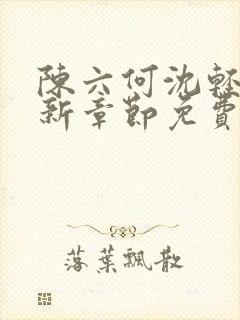 陳六何沈輕
新章節免費
落葉飄散